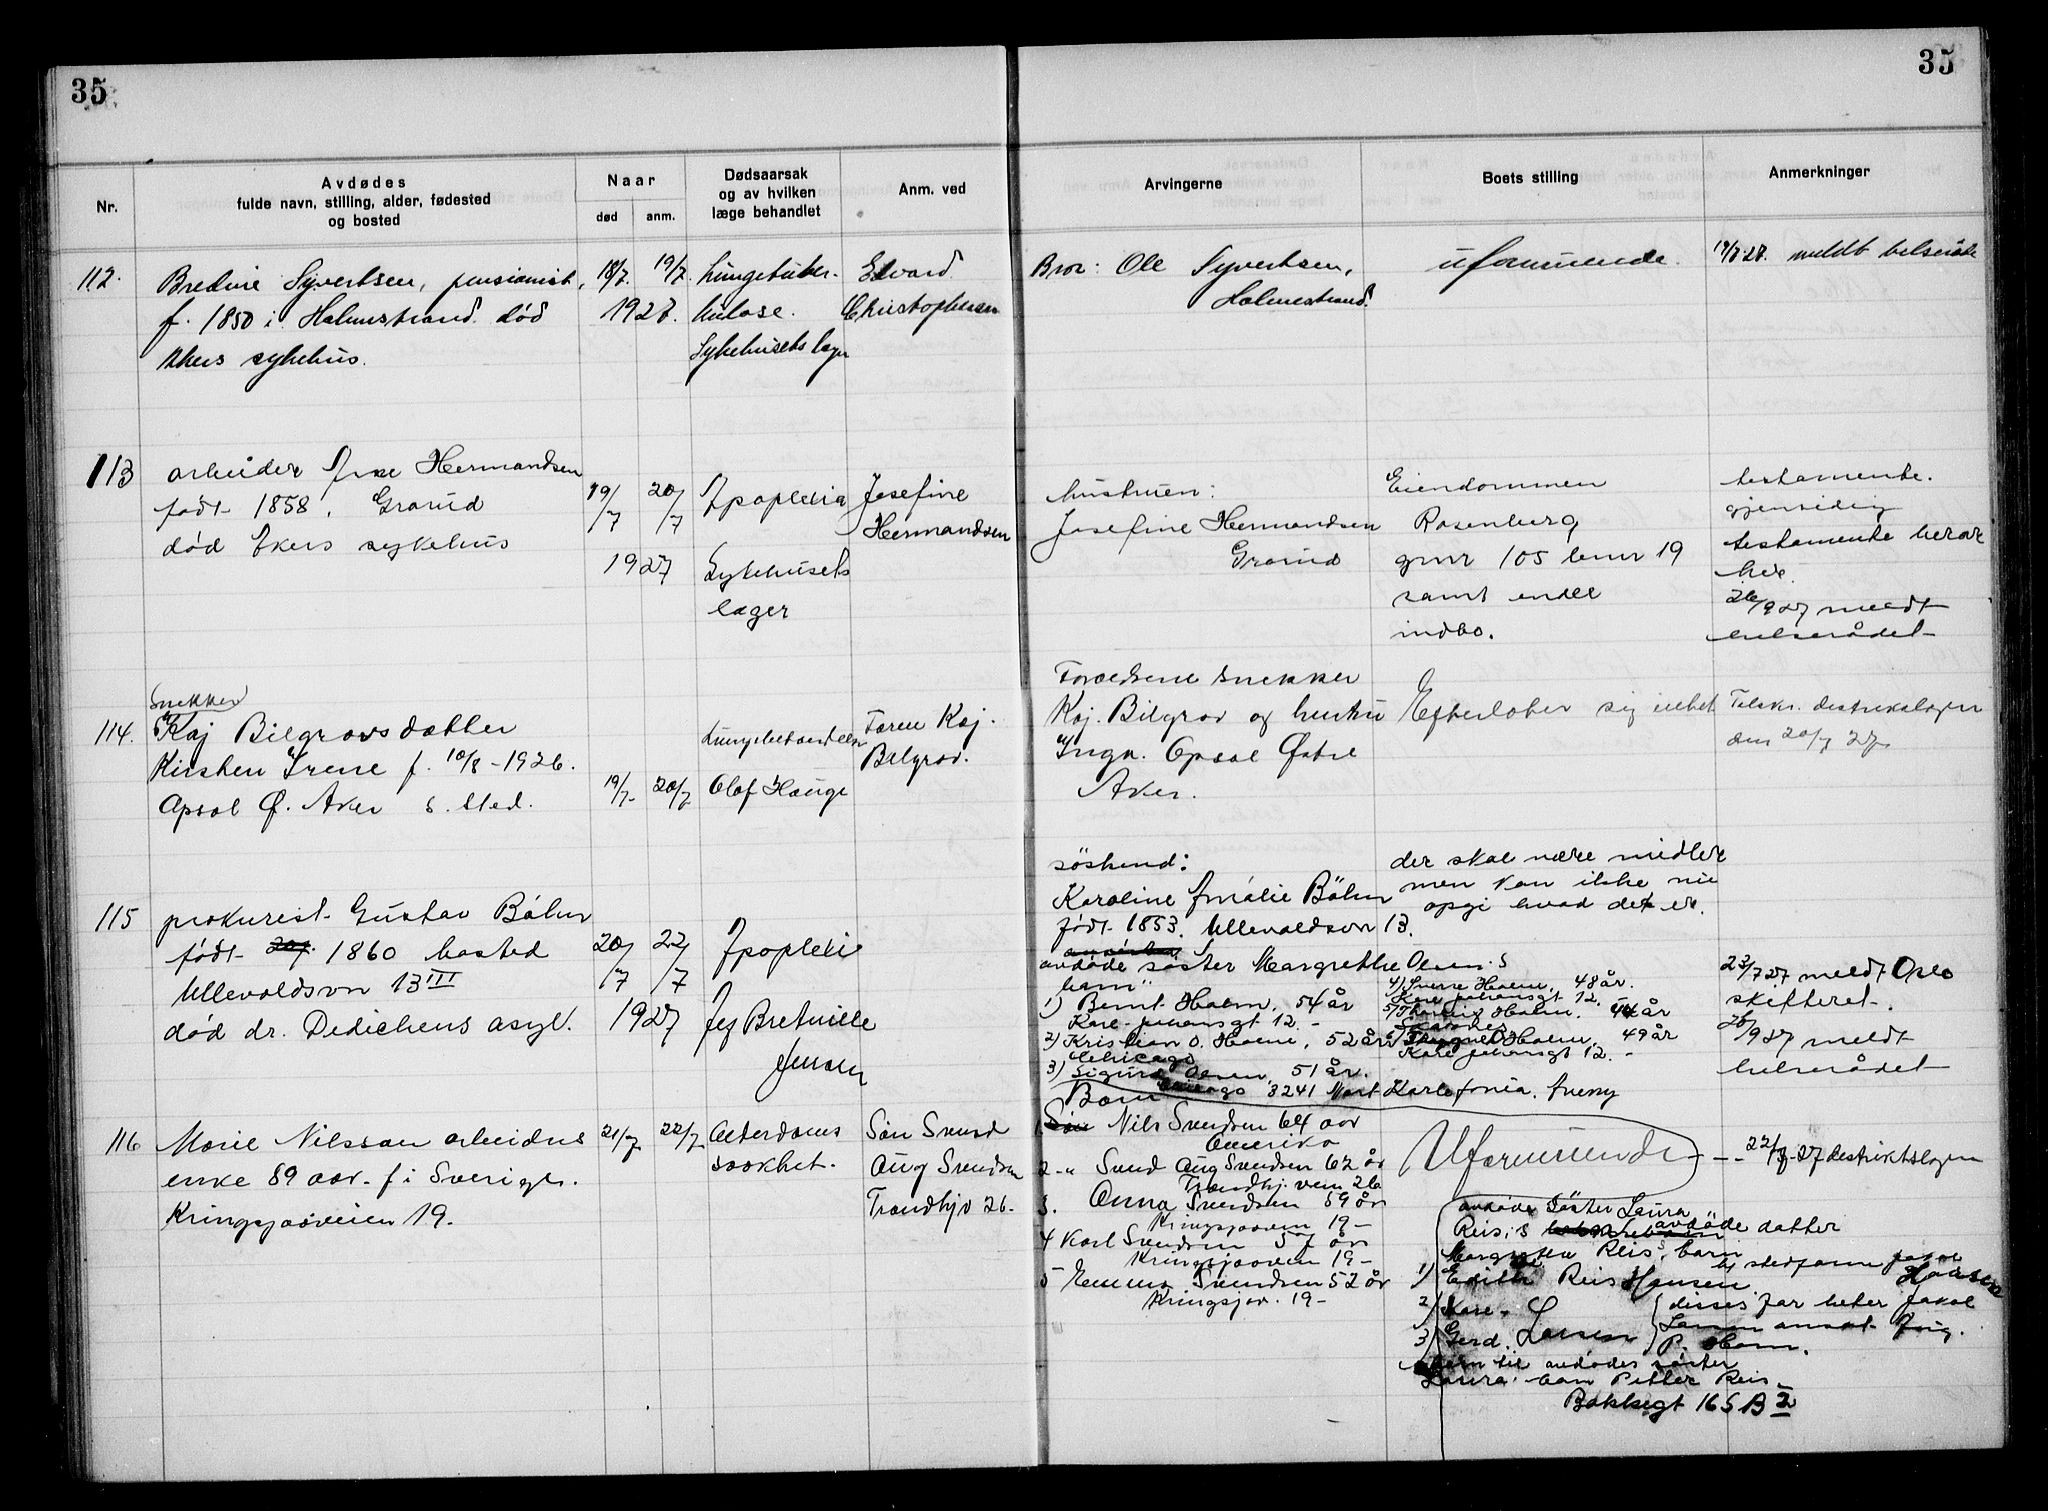 35
35
Nr.
Avdødes
fulde navn, stilling, alder, fødested
og bosted
Naar
død
anm.
Dødsaarsak
og av hvilken
læge behandlet
Anm. ved
Arvingerne
Boets stilling
Anmerkninger
112.
Sijvertsen, pensionist,
f. 1850 i Holmestrand. død
Akers sykehus.
18/7. 19/7.
1927.
Lungetuber-
kulose.
Sykehusets læger
Edvard
Christophersen
Bror: Ole Syvertsen,
Holmestrand.
uformuende.
meldt helseråd
113
arbeider Hermandsen
født 1858. Grorud
død Akers sykehus
19/7 20/7
1927
Apoplexia
Sykehusets
læger
Josefine
Hermandsen
hustruen:
Josefine Hermandsen
Grorud
Eiendommen
Rosenberg
gnr 105 bnr 19
samt endel
indbo.
testamente.
gjensidig
testamente beror
her.
26/9 27 meldt
helserådet
114.
Snekker
Kaj Bilgrovs datter
Kirsten Irene f. 10/8-1926.
Opsal Ø. Aker s. sted.
19/7- 20/7
Olaf Hauge
Faren Kaj.
Bilgrov.
Forældrene snekker
Kaj. Bilgrov og hustru
Inga. Opsal Østre
Aker.
Efterlater sig intet
Tilskr. distriktslægen
den 20/7 27
115
prokurist Gustav Böhn
født 1860 bosted
Ullevoldsvn 13 III
død dr. Dedichens asyl.
20/7 22/7
1927
Apoplexi
Bretville
Jensen
söskend:
Karoline Amalie Böhn
født 1853. Ullevoldsvn 13.
avdöde søster Margrethe Olsen's
barn"
1) Bernt Holm, 54 år
Karl-Johansgt 12.-
2) Kristian O. Holm, 52 år
Chicago
3) Sigurd Olsen, 51 år.
Chicago 3241 Nort
4) Sverre Holm, 48 år.
Karl Johansgt 12.
5) Holm, 44 år
Holm, 49 år
Karl Johansgt 12.-
der skal være midler
men kan ikke nu
opgi hvad det er.
23/7 27 meldt Oslo
skifteret.
26/9 27 meldt
helserådet
116
Marie Nilsson arbeiders
enke 89 aar. f i Sverige.
Kringsjaaveien 19.
21/7 22/7
Alderdoms
svakhet.
Søn Svend
Aug Svendsen
Trondhjv 26.
Barn
1. Nils Svendsen 64 aar
Amerika
2 - " Svend Aug Svendsen 62 år
Trondhj. vein 26
3. Anna Svendsen 59 år
Kringsjaavein 19-
4 Karl Svendsen 57 år
Kringsjaavein 19-
5 Emma Svendsen 52 år
Kringsjav. 19-
Uformuende
22/7-27 distriktslægen
avdøde søster Laura
Reis's avdöde datter
Margrethe Reis's barn
1) Edith Reis Hansen
Hansen
2) Kåre
3) Gerd. Larsen
disses far heter Jakob
Larsen ansat
P. Ham.
barn til avdødes søster
Laura Petter Reis
Bakkegt 16 S B 2